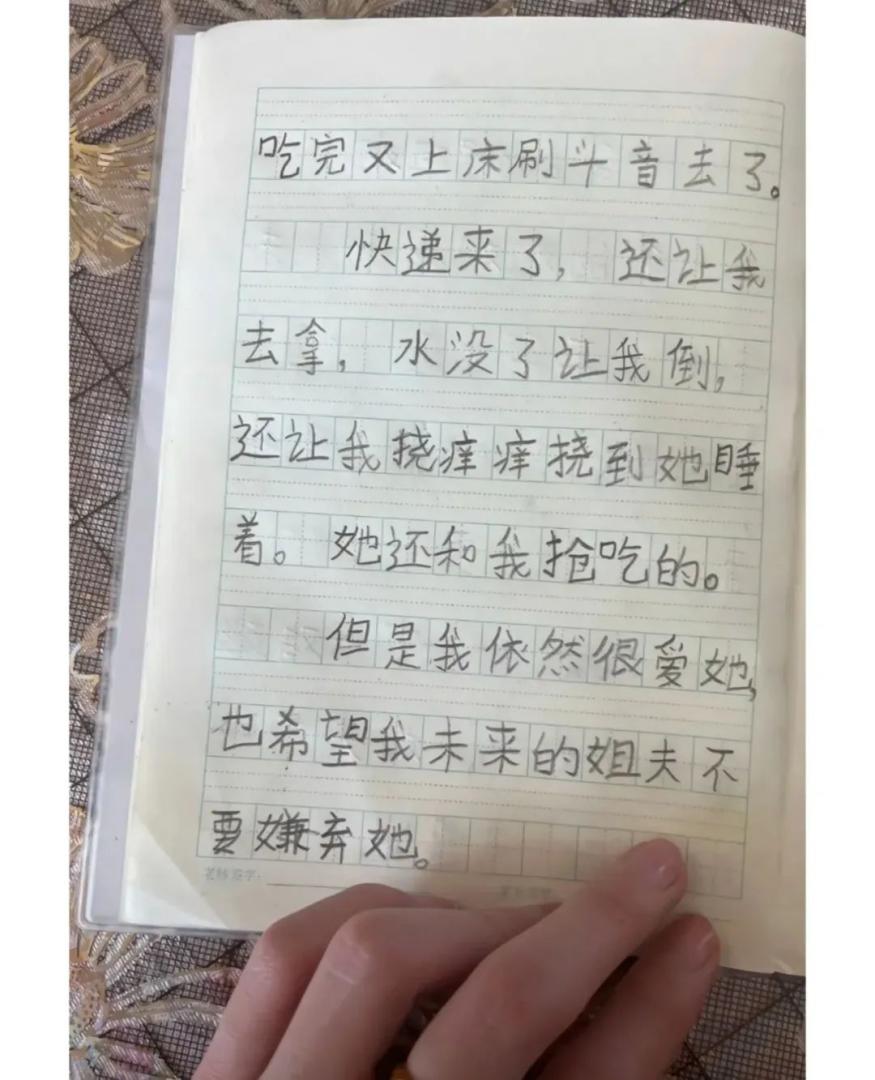 吃完又上床刷斗音去了。
快递来了，还让我
去拿，水没了让我倒，
还让我挠痒痒挠到她睡
着。她还和我抢吃的。
但是我依然很爱她，
也希望我未来的姐夫不
要嫌弃她。
老师签字：